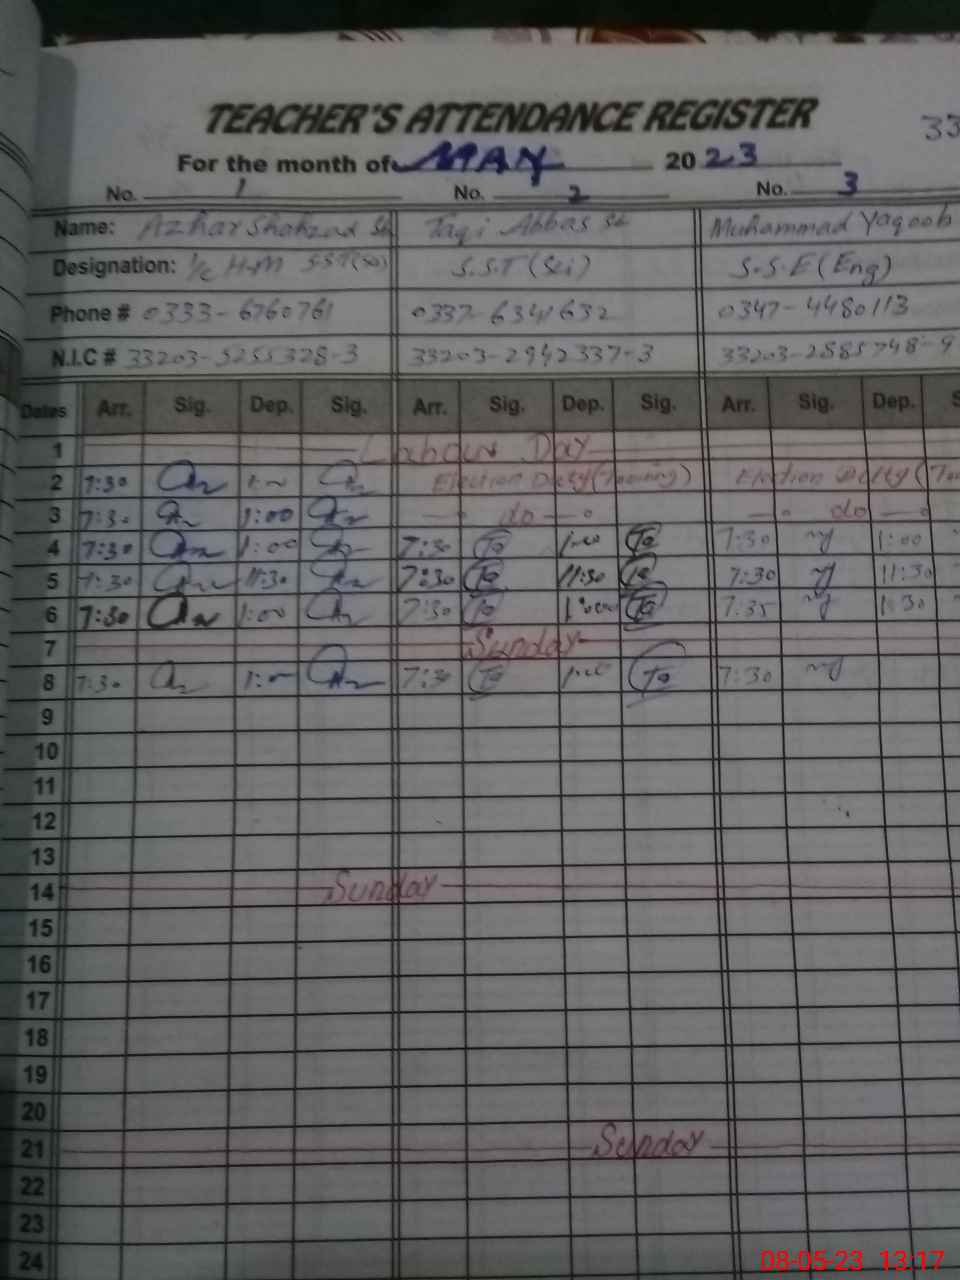 TEACHER'S ATTENDANCE REGISTER
33
For the month of MAY 2023
No. 1 No. 2 No. 3
Name: Azhar Shahzad Sb Taqi Abbas Sb Muhammad Yaqoob
Designation: I/C H.M S.S.T(Sci) S.S.T (Sci) S.S.E (Eng)
Phone # 0333-6760761 0337-6341632 0347-4480113
N.I.C # 33203-5255328-3 33203-2942337-3 33203-2885748-9
Dates Arr. Sig. Dep. Sig. Arr. Sig. Dep. Sig. Arr. Sig. Dep. S
1 Labour Day
2 7:30 Election Duty (Training) Election Duty (
3 7:30 1:00 do do
4 7:30 1:00 7:30 Ta 1:00 Ta 7:30 1:00
5 7:30 11:30 7:30 Ta 11:30 Ta 7:30 11:30
6 7:30 1:00 7:30 Ta 1:00 Ta 7:35 1:30
7 Sunday
8 7:30 1:00 7:30 Ta 1:00 Ta 7:30
9
10
11
12
13
14 Sunday
15
16
17
18
19
20
21 Sunday
22
23
24
08-05-23 13:17